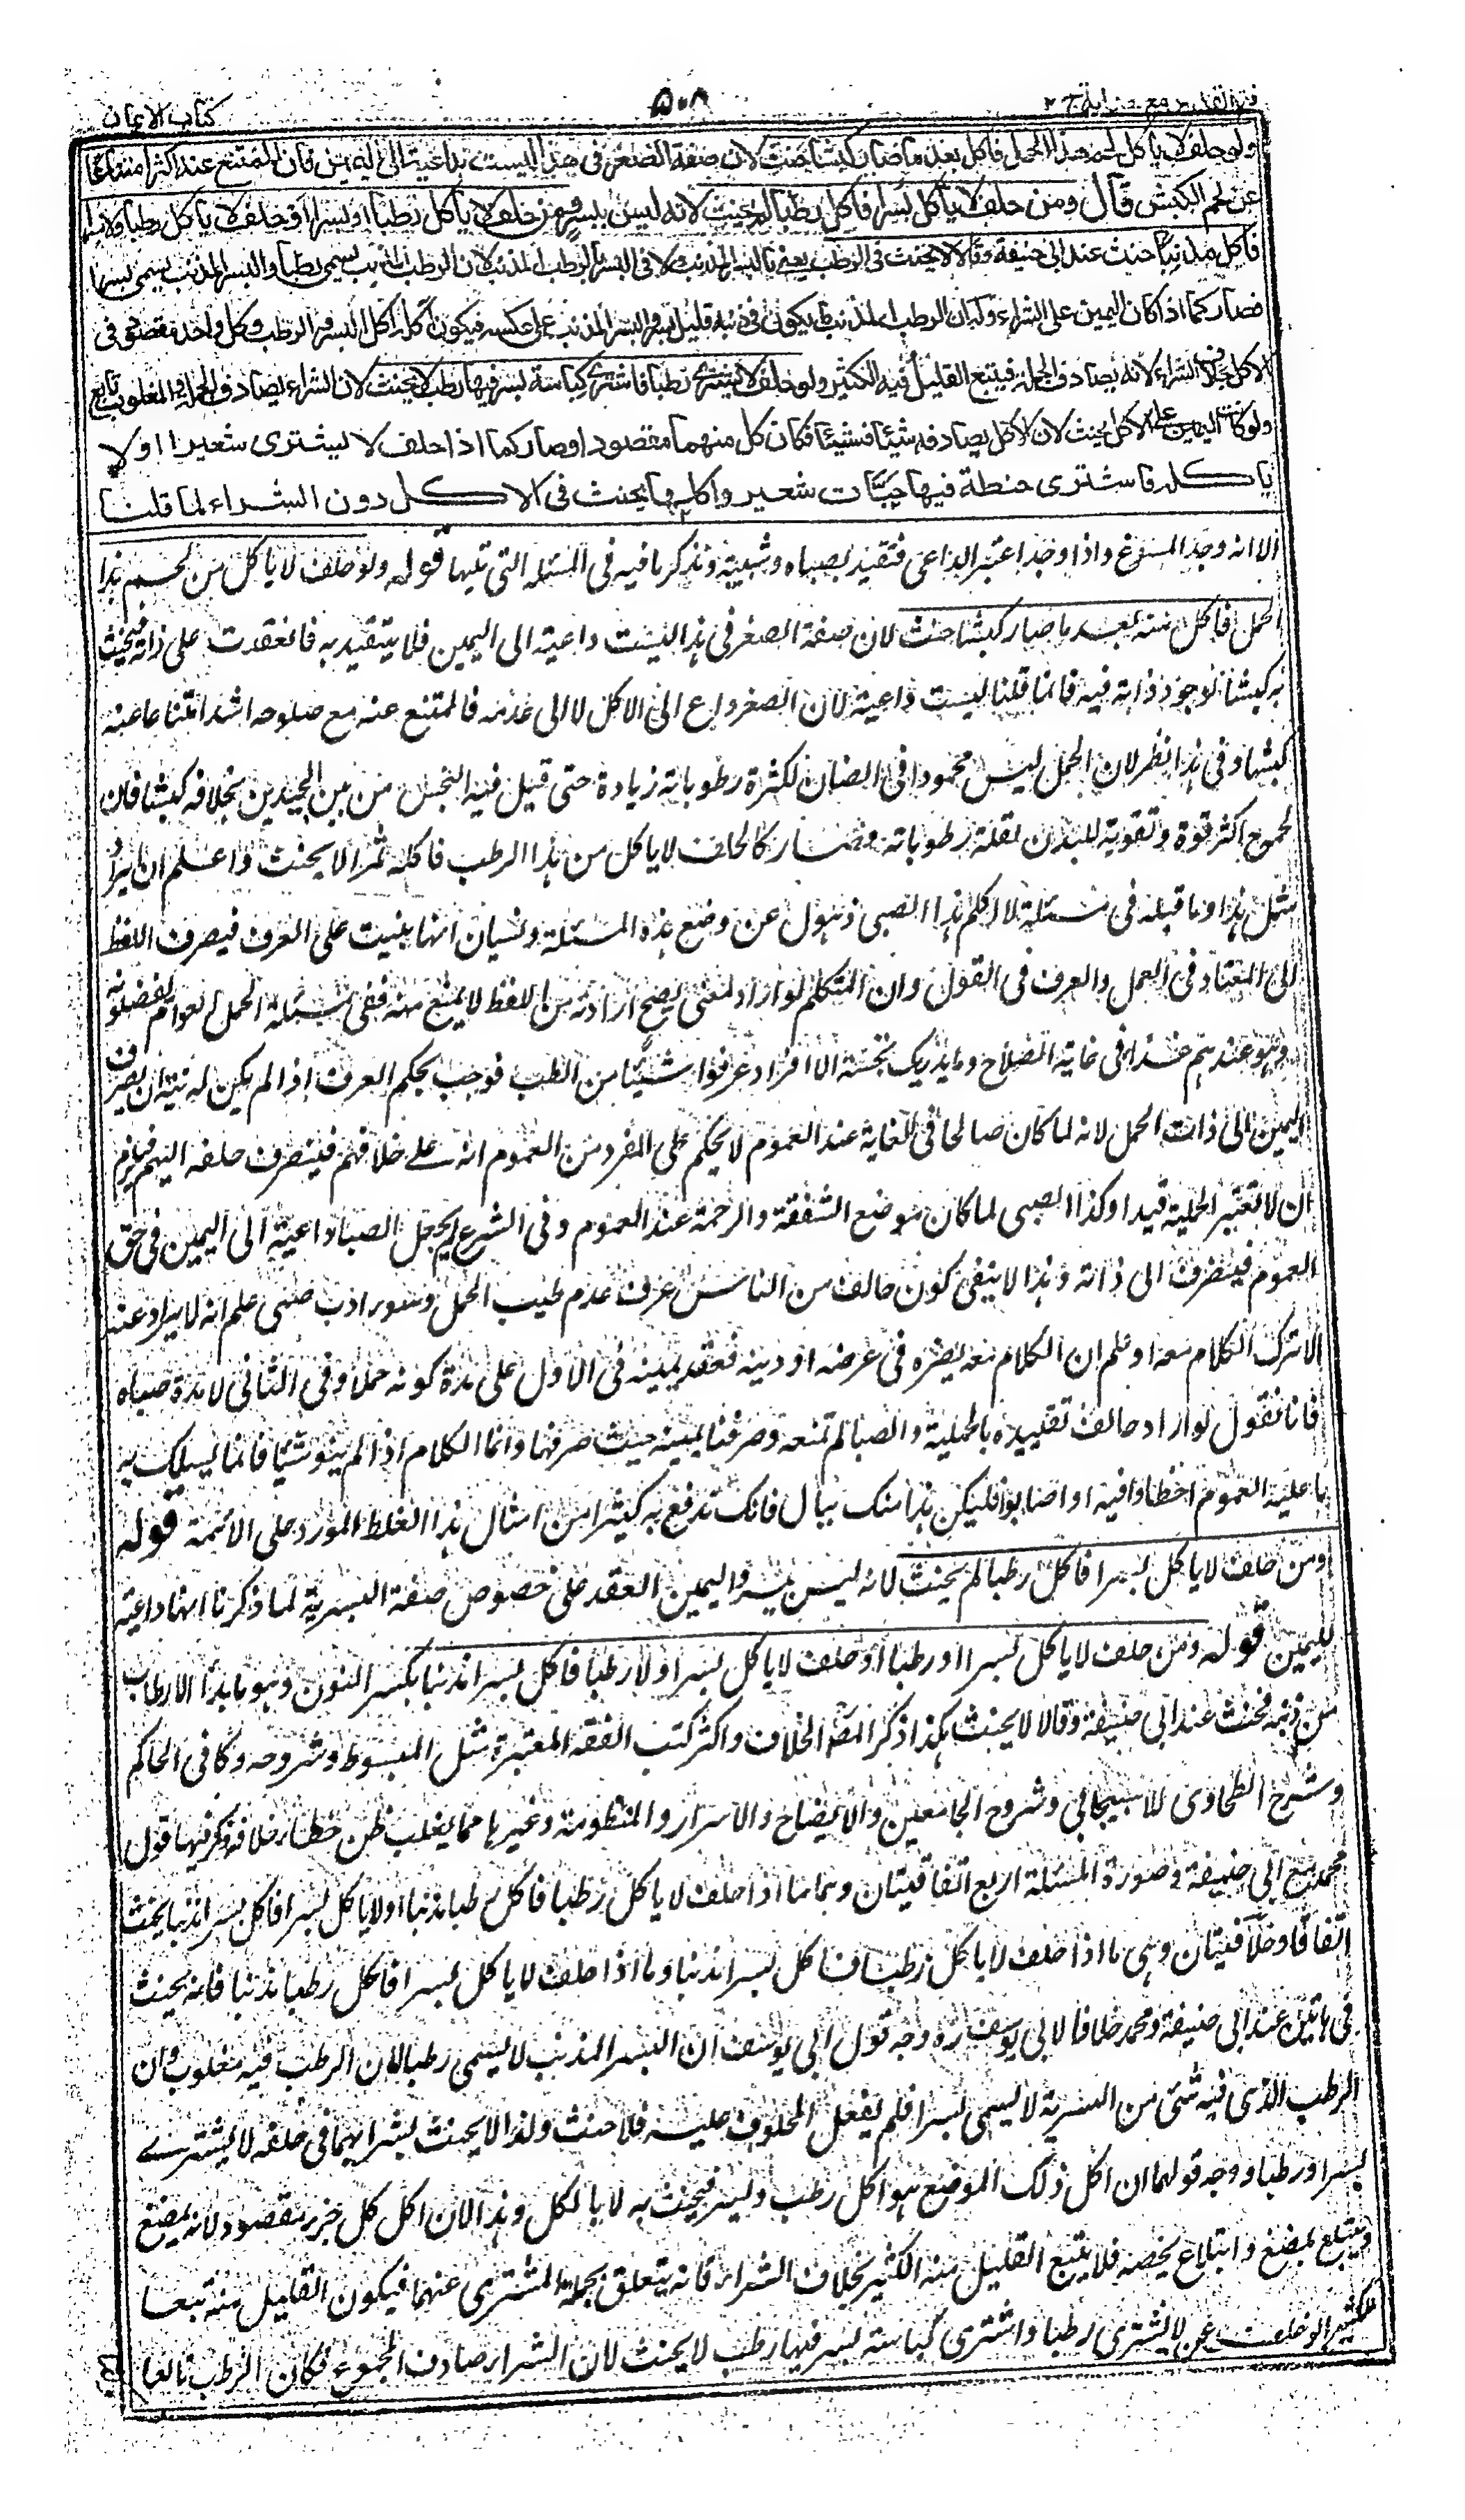 فتح القدير مع هداية ج ٢
٥٠٨
كتاب الايمان
ولو حلف لا يأكل لحم هذا الحمل فأكل بعد ما صار كبشا حنث لان صفة الصغر في هذا ليست بداعية الى اليمين فان الممتنع عنه اكثر امتناعا
عن لحم الكبش قال ومن حلف لا يأكل بسرا فأكل رطبا لم يحنث لانه ليس ببسر ومن حلف لا يأكل رطبا او بسرا او حلف لا يأكل رطبا ولا بسرا
فأكل مذنبا حنث عند ابي حنيفة وقالا لا يحنث في الرطب يعني بالبسر المذنب ولا في البسر بالرطب المذنب لان الرطب المذنب يسمى رطبا والبسر المذنب يسمى بسرا
فصار كما اذا كان اليمين على الشراء وله ان الرطب المذنب ما يكون في ذنبه قليل بسر والبسر المذنب على عكسه فيكون آكله آكل البسر والرطب وكل واحد مقصود في
الاكل بخلاف الشراء لانه يصادف الجملة فيتبع القليل فيه الكثير ولو حلف لا يشتري رطبا فاشترى كباسة بسر فيها رطب لا يحنث لان الشراء يصادف الجملة والمغلوب تابع
ولو كانت اليمين على الاكل يحنث لان الاكل يصادفه شيئا فشيئا فكان كل منهما مقصودا وصار كما اذا حلف لا يشترى شعيرا او لا
يأكله فاشترى حنطة فيها حبات شعير واكلها يحنث فى الاكل دون الشراء لما قلنا
الا انه وجد المسوغ واذا وجد اعتبر الداعى فتقيد بصباه وشبيبته ونذكر ما فيه فى المسئلة التى تليها قوله ولو حلف لا ياكل من لحم هذا
الحمل فاكل منه بعد ما صار كبشا حنث لان صفة الصغر فى هذا ليست داعية الى اليمين فلا يتقيد به فانعقدت على ذاته فيحنث
به كبشا لوجود ذاته فيه فانما قلنا ليست داعية لان الصغر داع الى الاكل لا الى عدمه فالممتنع عنه مع صلوحه اشد امتناعا عنه
كبشا وفى هذا نظر لان الحمل ليس محمودا فى الضان لكثرة رطوباته زيادة حتى قيل فيه النجس من بين الجيدين بخلافه كبشا فان
لحمه اكثر قوة وتقوية للبدن لقلة رطوباته وصار كالحلف لا ياكل من هذا الرطب فاكله تمرا لا يحنث واعلم ان ايراد
مثل هذا وما قبله فى مسئلة لا اكلم هذا الصبى ذهول عن وضع هذه المسئلة ونسيان انها بنيت على العرف فيصرف اللفظ
الى المعتاد فى العمل والعرف فى القول وان المتكلم لو اراد معنى يصح ارادته من اللفظ لا يمنع منه ففى مسئلة الحمل العوام يفضلونه
وهو عندهم غذا فى غاية الصلاح وما يدرك نجسه الا افراد عرفوا شيئا من الطب فوجب بحكم العرف اذا لم يكن له نية ان يصرف
اليمين الى ذات الحمل لانه لما كان صالحا فى الغاية عند العموم لا يحكم على الفرد من العموم انه على خلافهم فينصرف حلفه اليهم فيلزم
ان لا تعتبر الحملية قيدا وكذا الصبى لما كان موضع الشفقة والرحمة عند العموم وفى الشرع لم يجعل الصبا داعية الى اليمين فى حق
العموم فينصرف الى ذاته وهذا لا ينفى كون حالف من الناس عرف عدم طيب الحمل وسوء ادب صبى علم انه لا يردعه
الا ترك الكلام معه او علم ان الكلام معه يضره فى عرضه او دينه فعقد يمينه فى الاول على مدة كونه حملا وفى الثانى لا مدة صباه
فانا نقول لو اراد حالف تقييده بالحملية والصبا لم نمنعه وصرفنا يمينه حيث صرفها وانما الكلام اذا لم ينو شيئا فانما يسلك به
ما عليه العموم اخطاوا فيه او اصابوا فليكن هذا منك ببال فانك تدفع به كثيرا من امثال هذا الغلط المورد على الائمة قوله
ومن حلف لا ياكل بسرا فاكل رطبا لم يحنث لانه ليس ببسر واليمين انعقد على خصوص صفة البسرية لما ذكرنا انها داعية
لليمين قوله ومن حلف لا ياكل بسرا او رطبا او حلف لا ياكل بسرا ولا رطبا فاكل بسرا مذنبا بكسر النون وهو ما بدا الارطاب
من ذنبه فحنث عند ابى حنيفة وقالا لا يحنث هكذا ذكر المص الخلاف واكثر كتب الفقه المعتبرة مثل المبسوط وشروحه وكافى الحاكم
وشرح الطحاوى للاسبيجابى وشروح الجامعين والايضاح والاسرار والمنظومة وغيرها مما يغلب ظن خطاء خلافه ذكر فيها قول
محمد مع ابى حنيفة وصورة المسئلة اربع اتفاقيتان وهما ما اذا حلف لا ياكل رطبا فاكل رطبا مذنبا او لا ياكل بسرا فاكل بسرا مذنبا يحنث
اتفاقا وخلافيتان وهى ما اذا حلف لا ياكل رطبا فاكل بسرا مذنبا وما اذا حلف لا ياكل بسرا فاكل رطبا مذنبا فانه يحنث
فى هاتين عند ابى حنيفة ومحمد خلافا لابى يوسف ره وجه قول ابى يوسف ان البسر المذنب لا يسمى رطبا لان الرطب فيه مغلوب وان
الرطب الذى فيه شئ من البسرية لا يسمى بسرا فلم يفعل المحلوف عليه فلا حنث ولذا لا يحنث بشرائهما فى حلفه لا يشترى
بسرا ورطبا ووجه قولهما ان اكل ذلك الموضع هو اكل رطب وبسر فيحنث به لا بالكل وهذا لان اكل كل جزء مقصود لانه يمضغ
ويبتلع بمضغ وابتلاع يخصه فلا يتبع القليل منه الكثير بخلاف الشراء فانه يتعلق بجملة المشترى عنهما فيكون القليل منه تبعا
للكثير لو حلف عن لا يشترى رطبا واشترى كباسة بسر فيها رطب لا يحنث لان الشراء صادف المجموع فكان الرطب تابعا